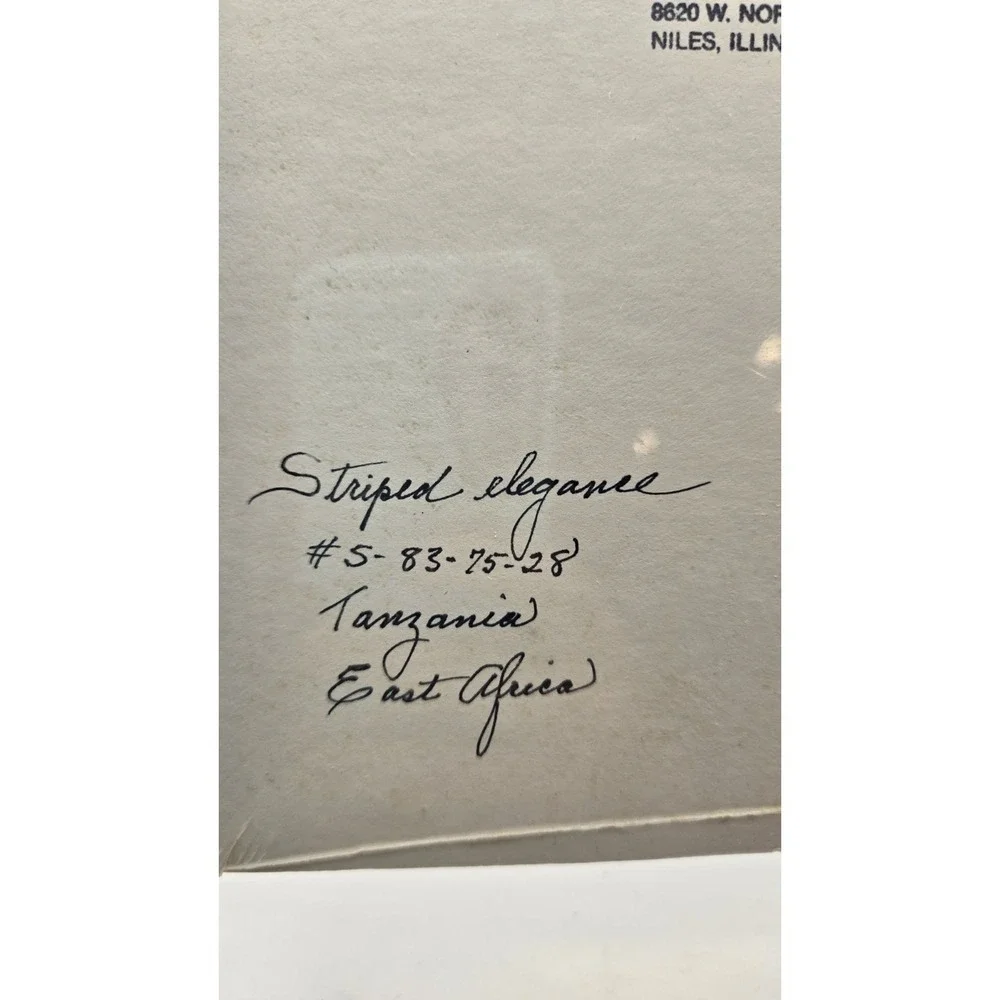 8620 W. NOR
NILES, ILLIN
Striped elegance
#S-83-75-28
Tanzania
East Africa